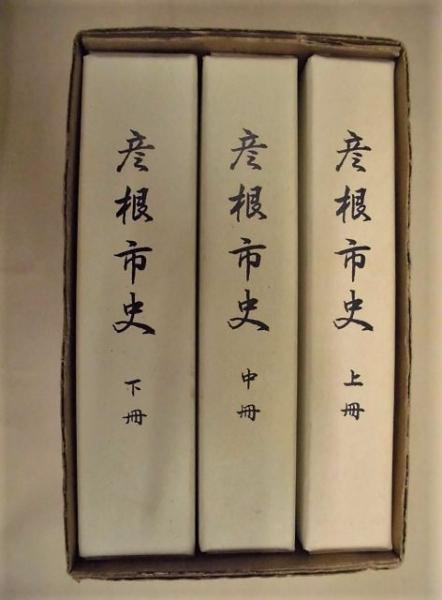 彦根市史 上冊
彦根市史 中冊
彦根市史 下冊